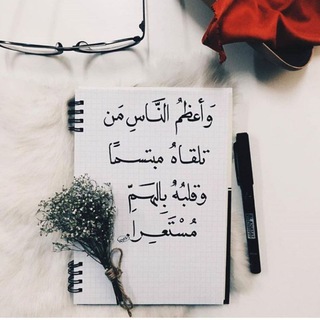 وَأعظمُ النَّاسِ مَن
تلقاهُ مبتسمًا
وقلبُهُ بِالهَمِّ
مُسْتَعِرا